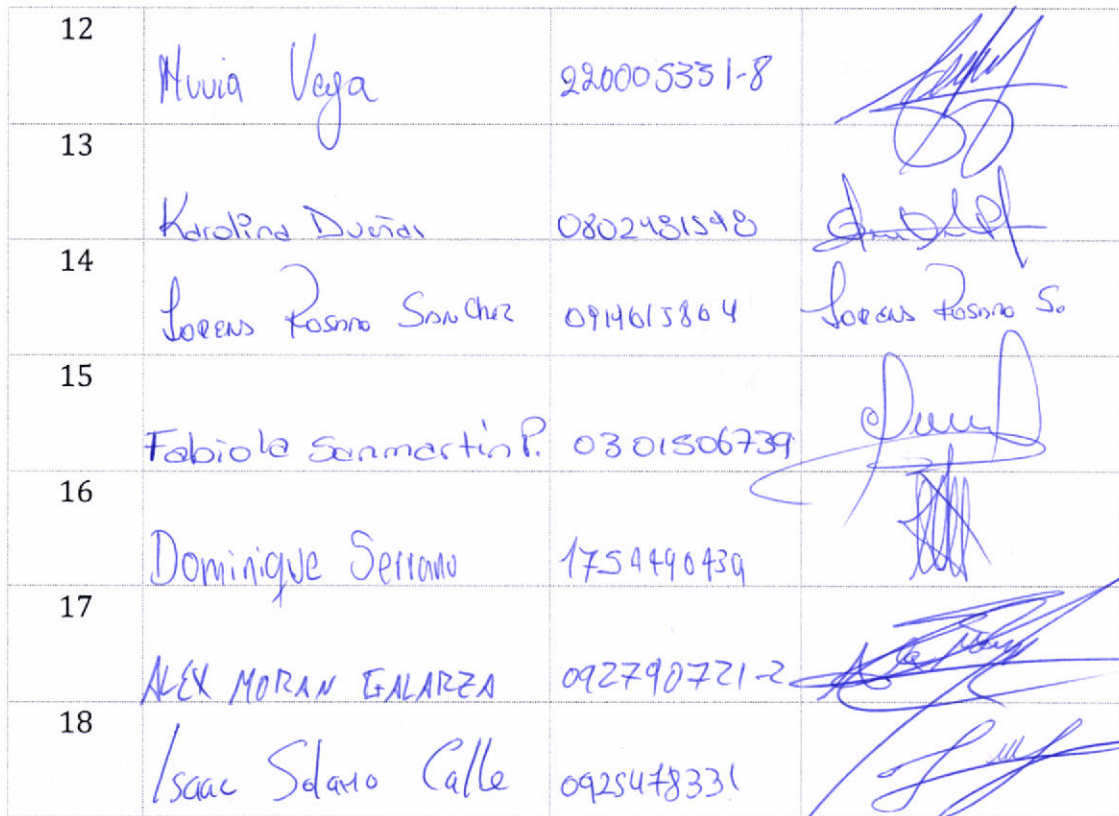 12
Nuvia Vega 220005331-8
13
Karolina Dueñas 0802481548
14
Lorens Rosano Sanchez 0914615804 Lorens Rosano S.
15
Fabiola Sanmartin P. 0301506739
16
Dominique Serrano 1754490439
17
ALEX MORAN GALARZA 092790721-2
18
Isaac Solano Calle 0925478331